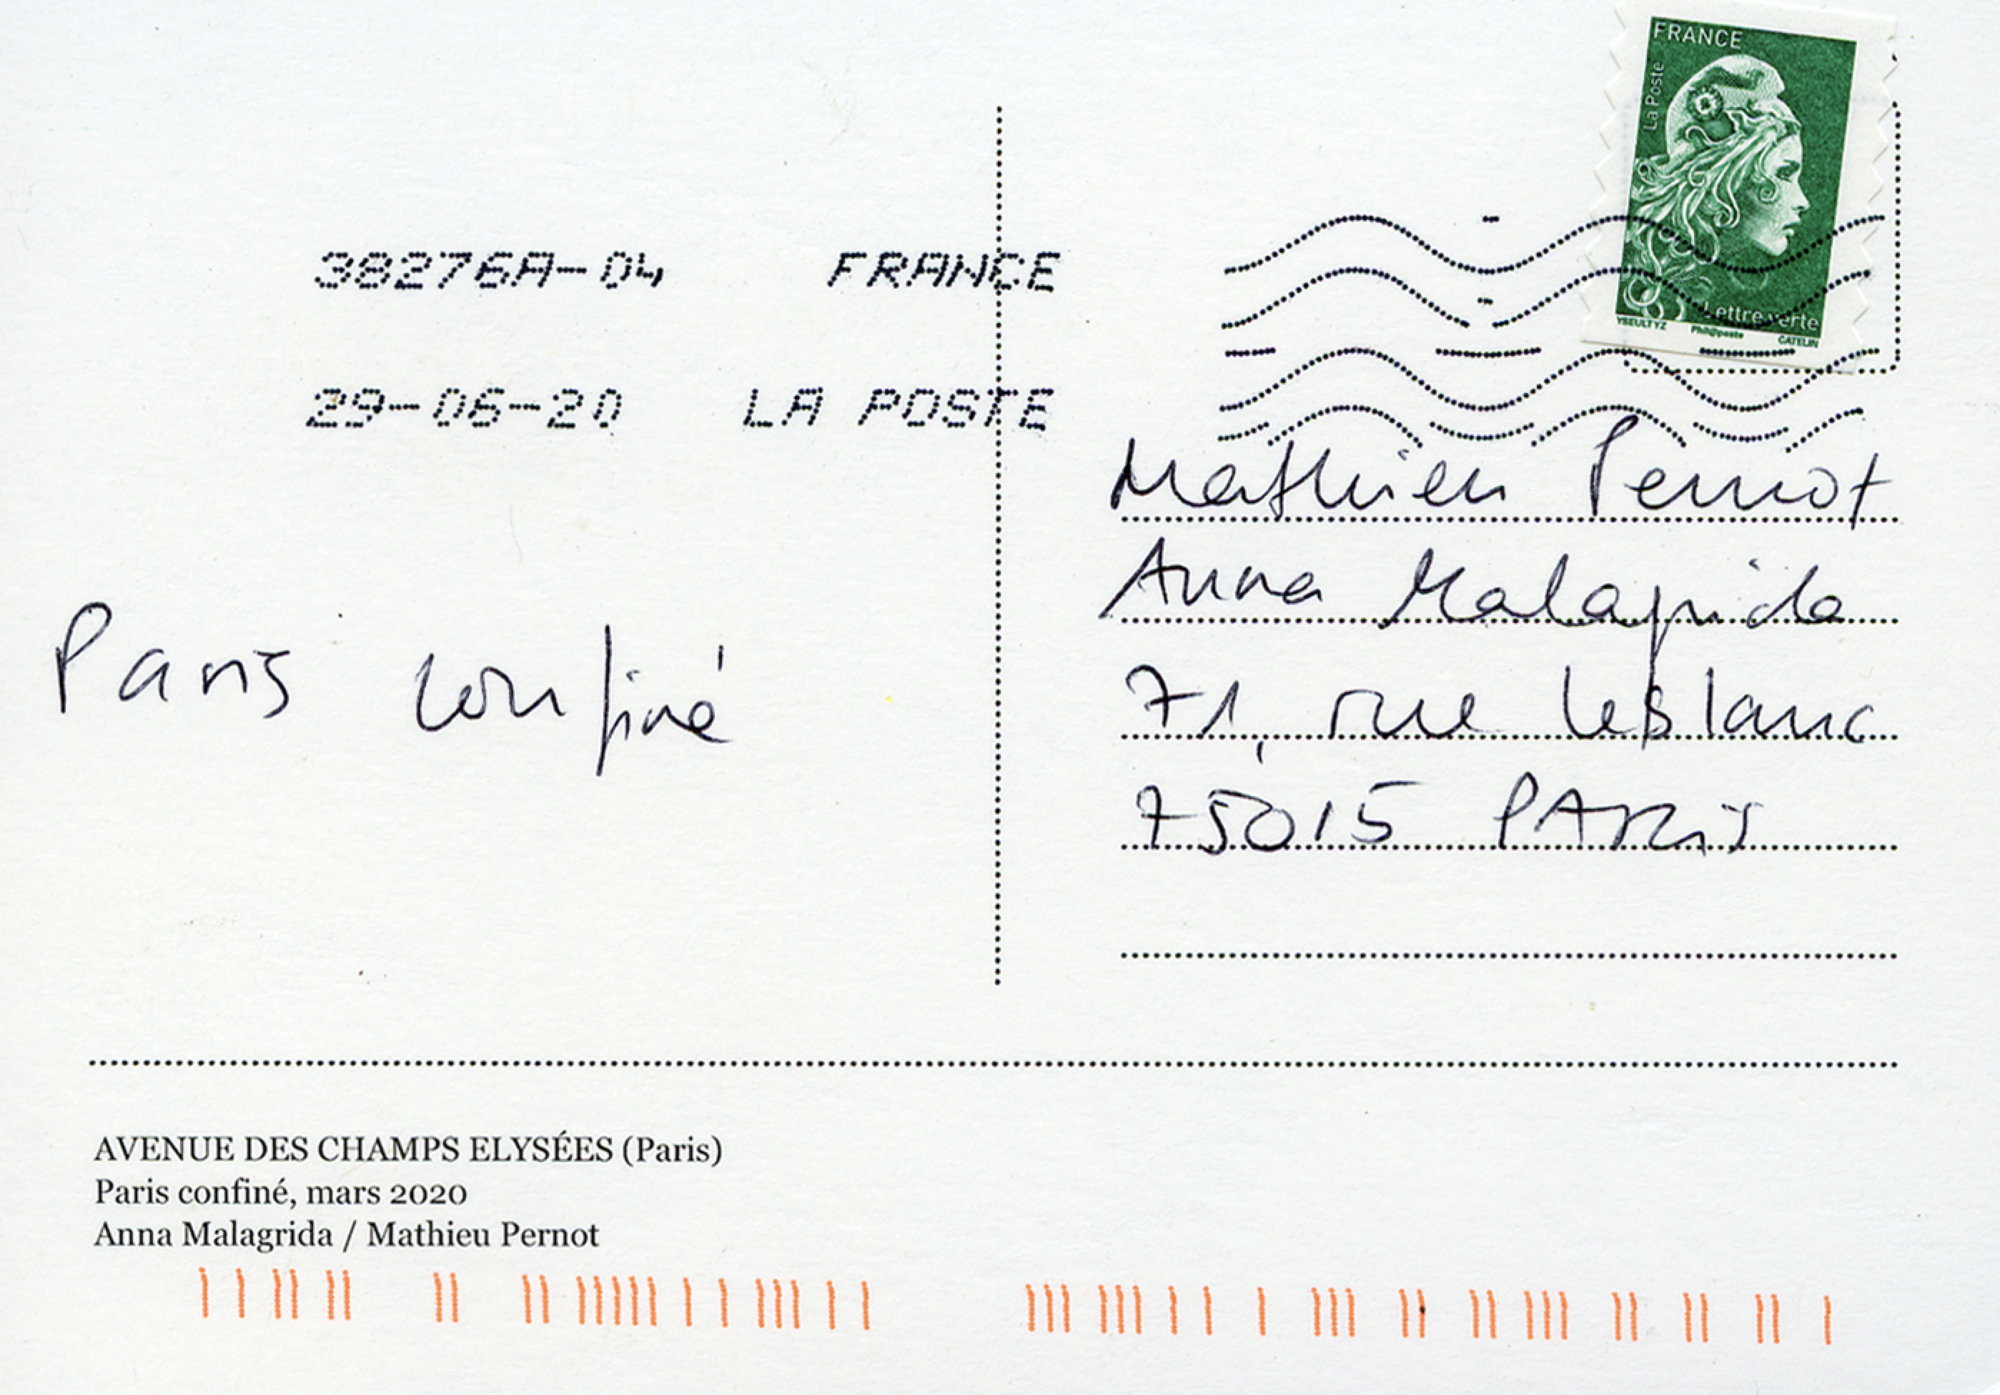 FRANCE
La Poste
Lettre verte
YSEULTYZ Phil@poste CATELIN
38276A-04 FRANCE
29-06-20 LA POSTE
Mathieu Pernot
Anna Malagrida
71, rue Leblanc
75015 PARIS
Paris confiné
AVENUE DES CHAMPS ELYSÉES (Paris)
Paris confiné, mars 2020
Anna Malagrida / Mathieu Pernot